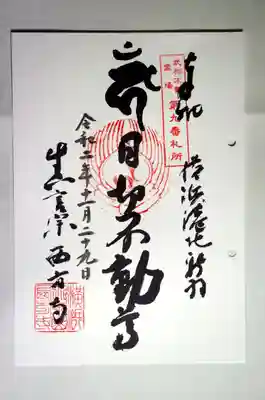 奉拝
横浜港北新羽
第九番札所
霊場
日切不動尊
令和二年十一月二十九日
真言宗 西方寺